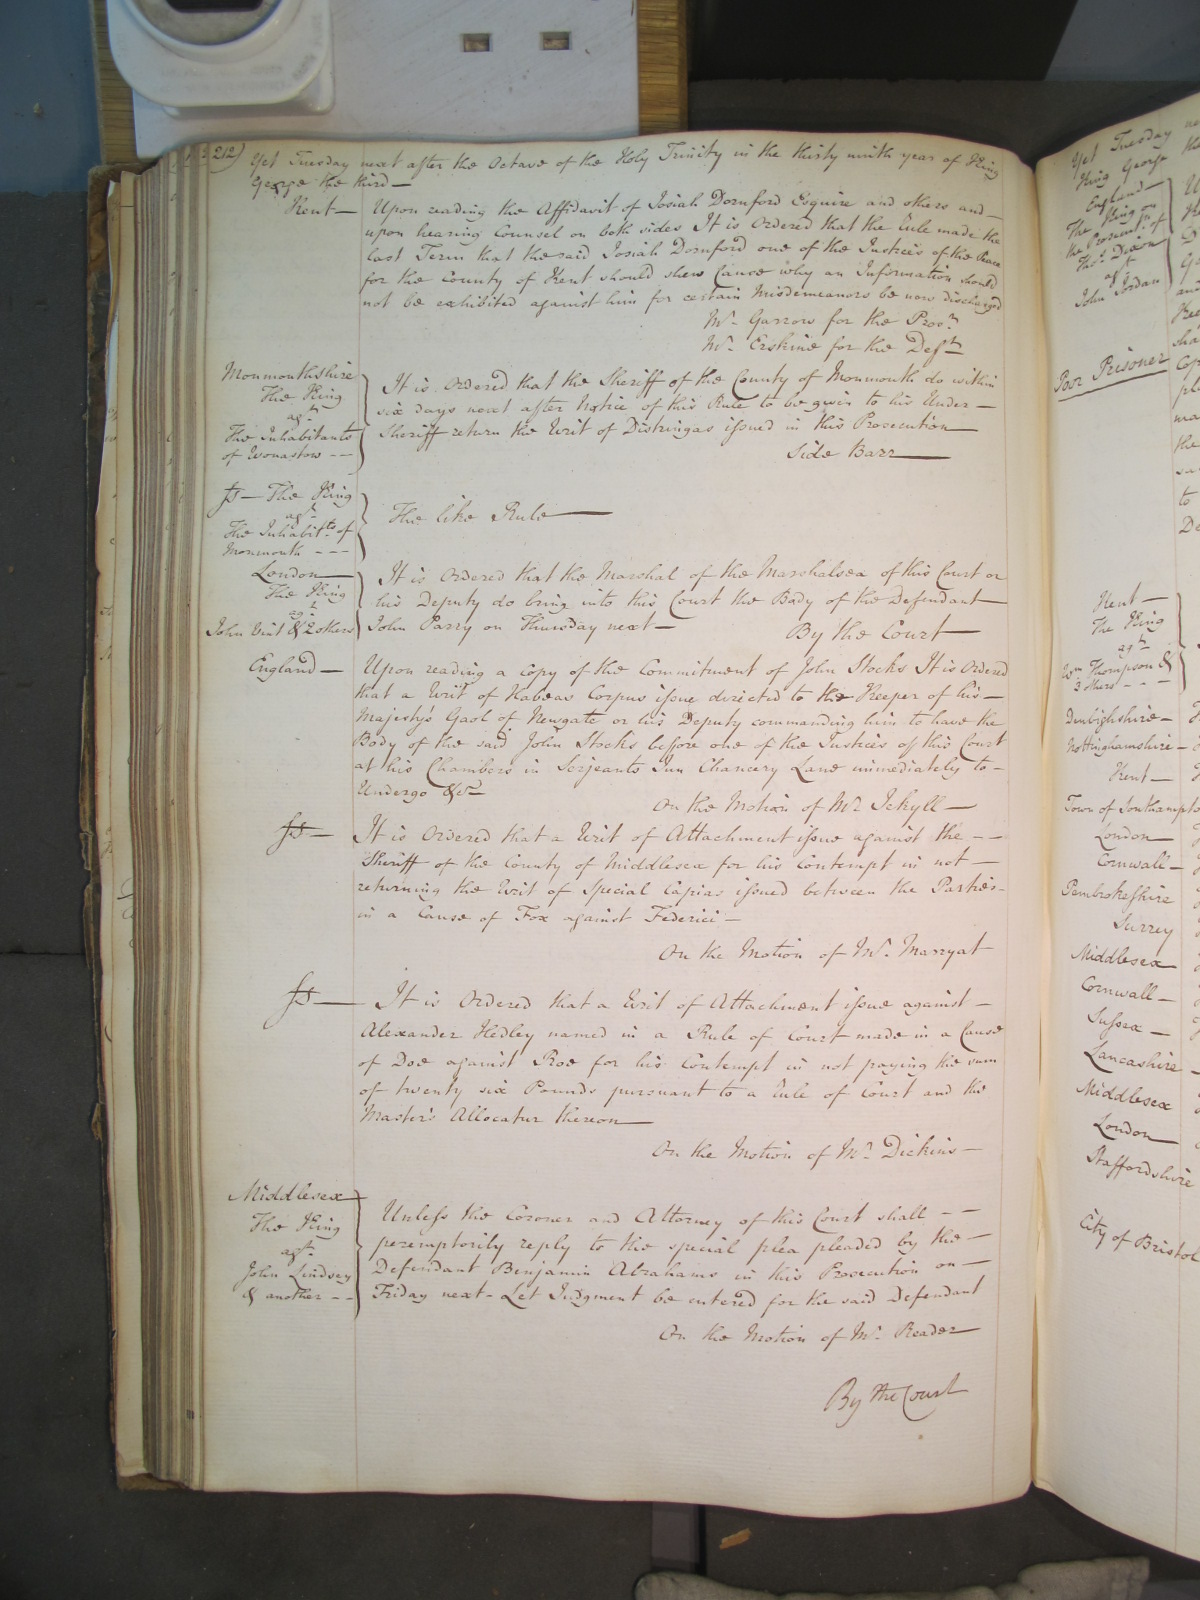 212)
Yet Tuesday next after the Octave of the Holy Trinity in the thirty ninth year of King
George the third —
Kent — Upon reading the Affidavit of Josiah Dornford Esquire and others and —
upon hearing Counsel on both sides It is Ordered that the Rule made the
last Term that the said Josiah Dornford one of the Justices of the Peace
for the County of Kent should shew Cause why an Information should
not be exhibited against him for certain Misdemeanors be now discharged
Mr. Garrow for the Prosr.
Mr. Erskine for the Deft.
Monmouthshire
The King
agt.
The Inhabitants
of Wonastow - -
It is Ordered that the Sheriff of the County of Monmouth do within
six days next after Notice of this Rule to be given to his Under —
Sheriff return the Writ of Distringas issued in this Prosecution —
Side Barr —
Ss — The King
agt.
The Inhabitts. of
Monmouth - - -
The like Rule —
London —
The King
agt.
John Vint & 2 others
It is Ordered that the Marshal of the Marshalsea of this Court or
his Deputy do bring into this Court the Body of the Defendant —
John Parry on Thursday next —
By the Court —
England — Upon reading a copy of the Commitment of John Stocks It is Ordered
that a Writ of Habeas Corpus issue directed to the Keeper of his —
Majesty's Gaol of Newgate or his Deputy commanding him to have the
Body of the said John Stocks before one of the Justices of this Court
at his Chambers in Serjeants Inn Chancery Lane immediately to —
Undergo &c —
On the Motion of Mr. Jekyll —
Ss — It is Ordered that a Writ of Attachment issue against the - -
Sheriff of the County of Middlesex for his Contempt in not —
returning the Writ of Special Capias issued between the Parties -
in a Cause of Fox against Federici —
On the Motion of Mr. Marryat
Ss — It is Ordered that a Writ of Attachment issue against —
Alexander Hedley named in a Rule of Court made in a Cause
of Doe against Roe for his Contempt in not paying the sum
of twenty six Pounds pursuant to a Rule of Court and the
Master's Allocatur thereon —
On the Motion of Mr. Dickins —
Middlesex
The King
agt.
John Lindsey
& another - -
Unless the Coroner and Attorney of this Court shall - -
peremptorily reply to the special plea pleaded by the —
Defendant Benjamin Abrahams in this Prosecution on —
Friday next - Let Judgment be entered for the said Defendant
On the Motion of Mr. Reader —
By the Court
Yet Tuesday
King George
England —
The King on
the Prosecutn. of
Thos. Dixon
agt.
John Jordan
Poor Prisoner
Kent —
The King
agt.
Wm. Thompson &
3 others - - -
Denbighshire —
Nottinghamshire —
Kent —
Town of Southampto
London —
Cornwall —
Pembrokeshire
Surrey
Middlesex
Cornwall —
Sussex —
Lancashire -
Middlesex
London —
Staffordshire
City of Bristol